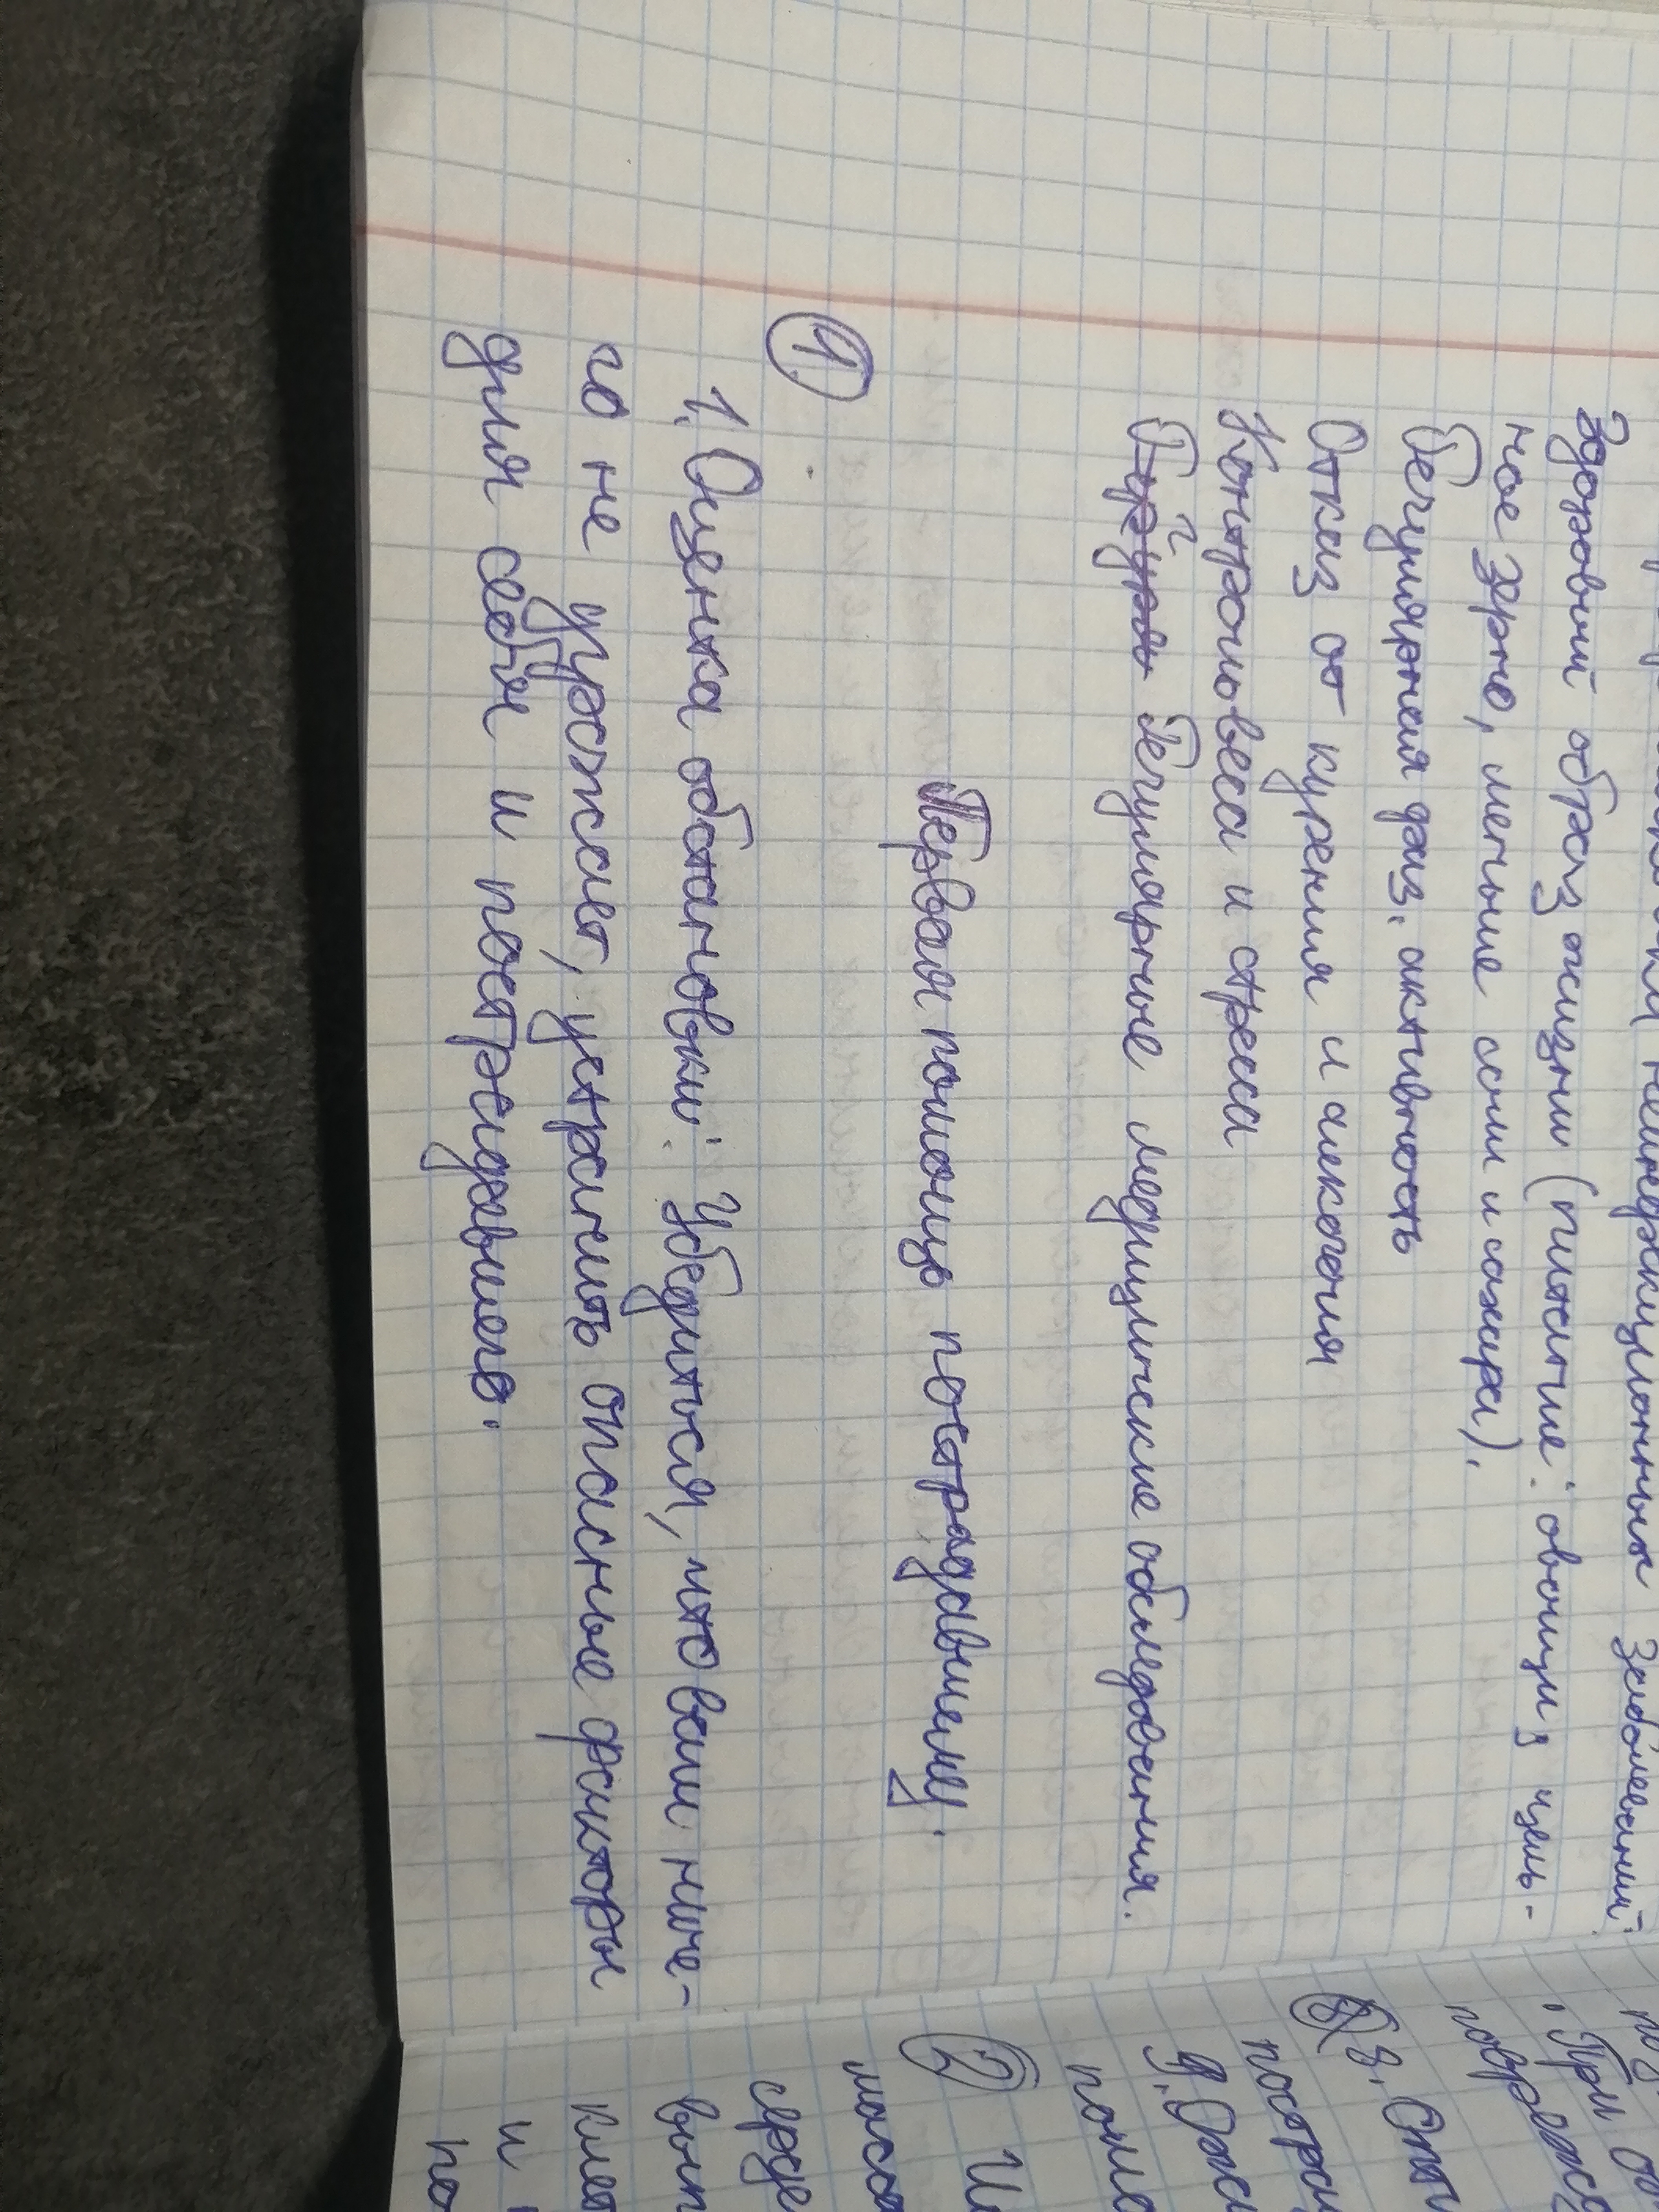 неинфекционных заболеваний:
Здоровый образ жизни (питание: овощи, цель-
ное зерно, меньше соли и сахара).
Регулярная физ. активность
Отказ от курения и алкоголя
Контроль веса и стресса
Регулярные медицинские обследования.
Первая помощь пострадавшему.
1.
1. Оценка обстановки: Убедиться, что вам ниче-
го не угрожает, устранить опасные факторы
для себя и пострадавшего.
При
8.
9.
2